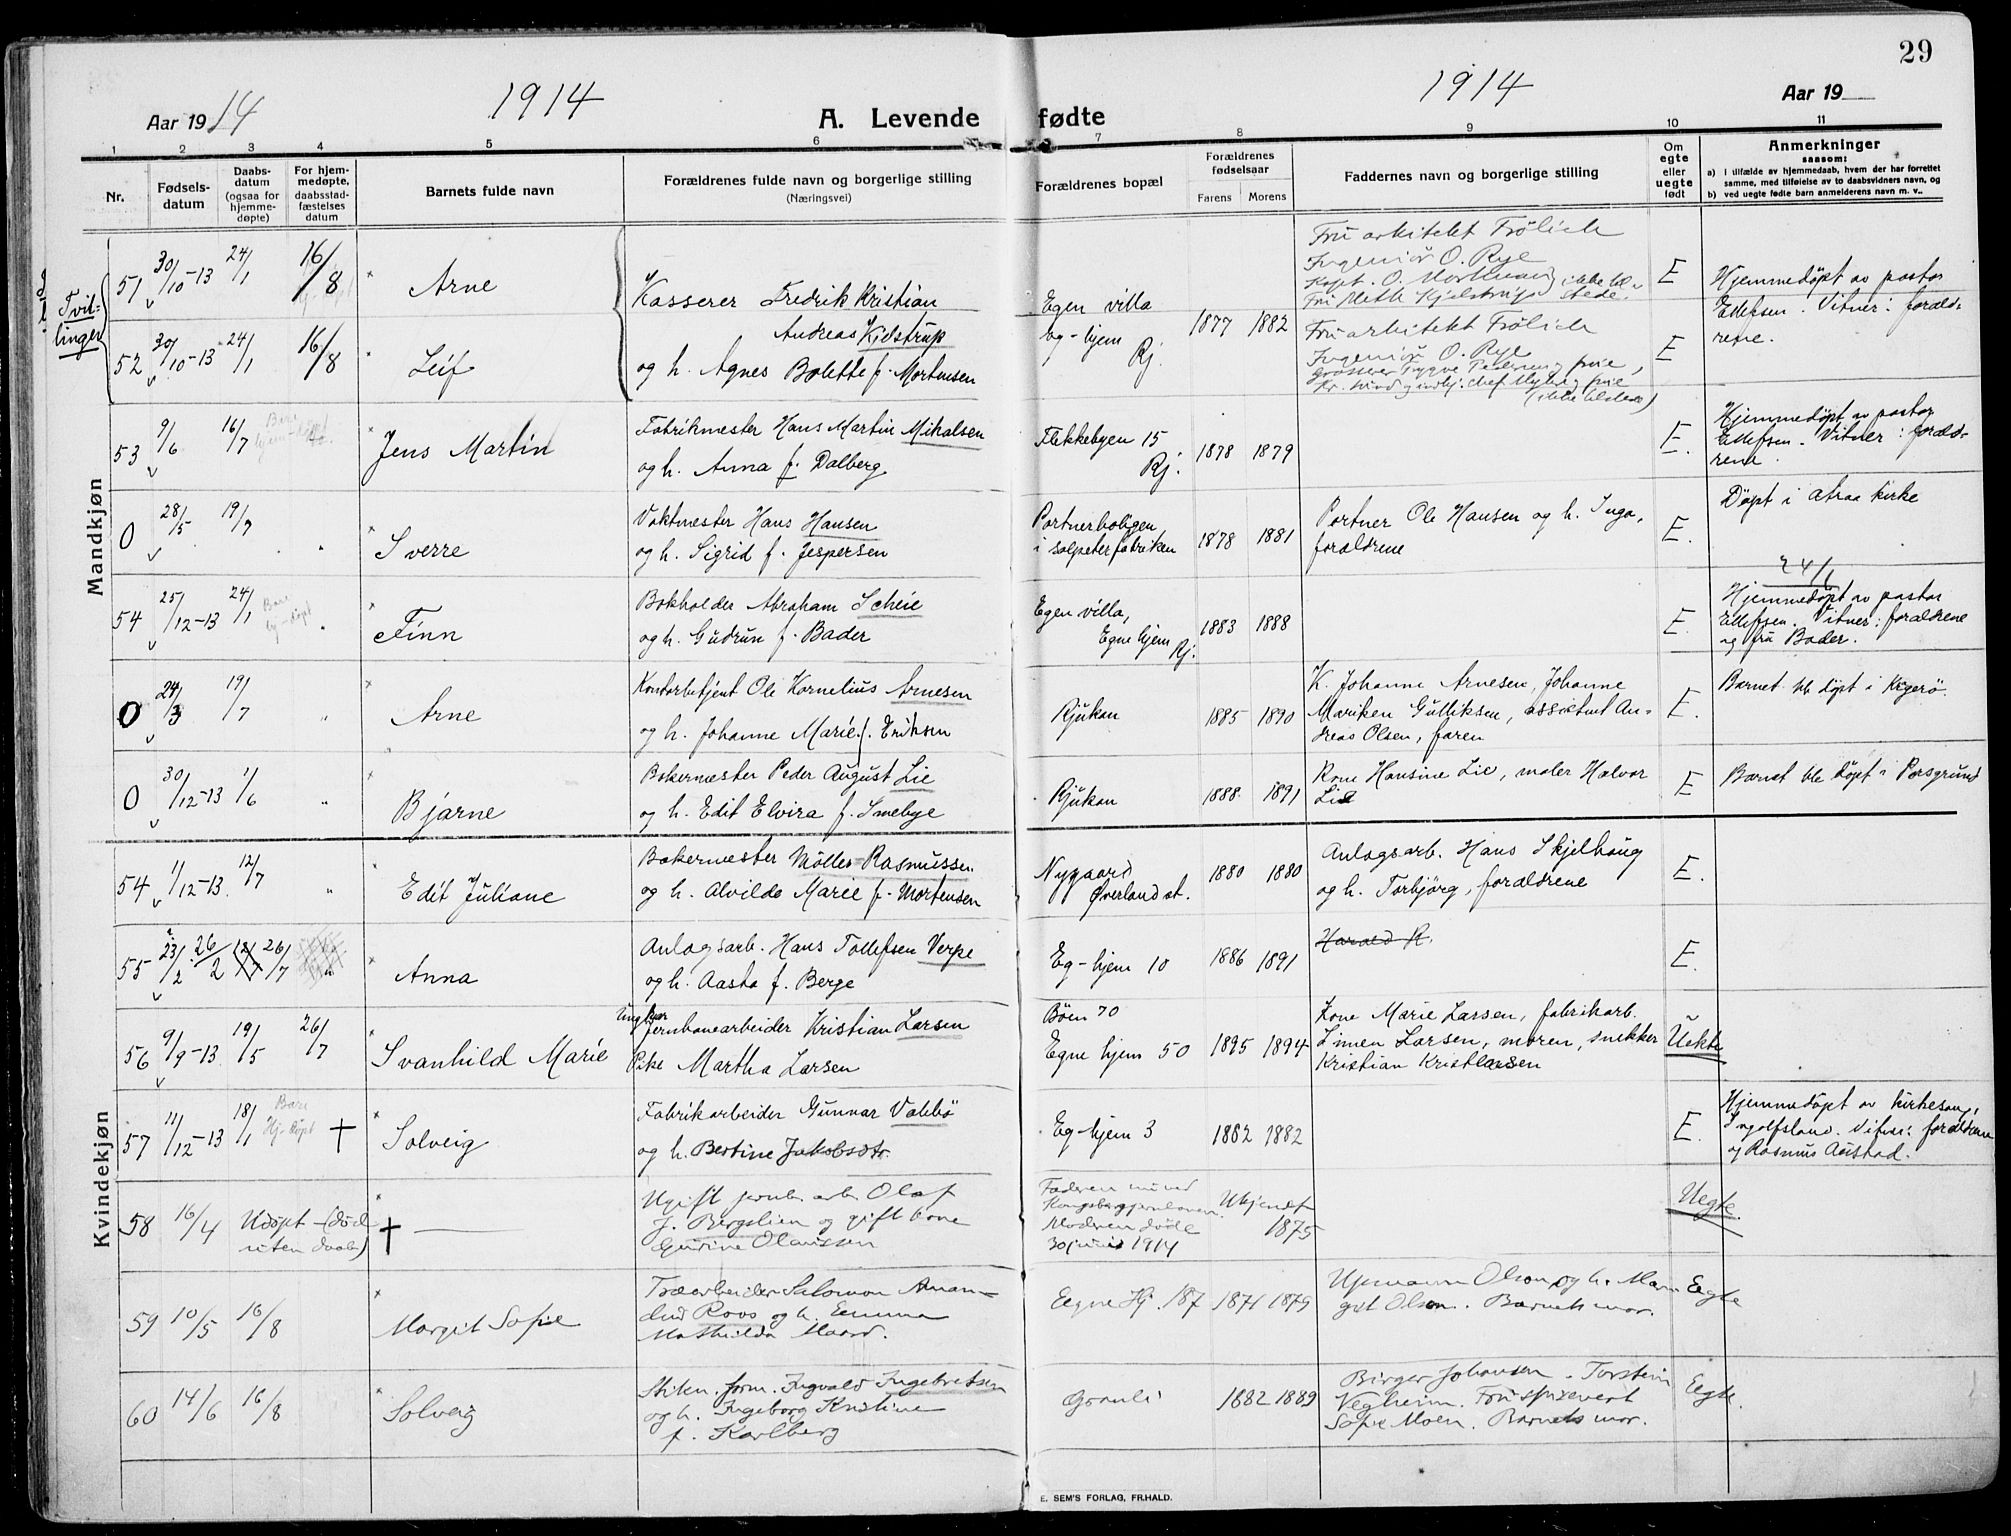 29
Aar 1914
1914
A. Levende fødte
1914
Aar 19
1 2 3 4 5 6 7 8 9 10 11
Nr.
Fødsels-
datum
Daabs-
datum
(ogsaa for
hjemme-
døpte)
For hjem-
medøpte,
daabsstad-
fæstelses
datum
Barnets fulde navn
Forældrenes fulde navn og borgerlige stilling
(Næringsvei)
Forældrenes bopæl
Forældrenes
fødselsaar
Farens Morens
Faddernes navn og borgerlige stilling
Om
egte
eller
uegte
født
Anmerkninger
saasom:
a) i tilfælde av hjemmedaab, hvem der har forrettet
samme, med tilføielse av to daabsvidners navn, og
b) ved uegte fødte barn anmelderens navn m. v..
Mandkjøn
Tvil-
linger
51 30/10-13 24/1 16/8 Arne
Kasserer Fredrik Kristian
Andreas Kjelstrup
og h. Agnes Bolette f. Mortensen
Egen villa
hjem
Rj.
1877 1882
Fru arkitekt Frölich
Ingeniör O. Rye
E
Hjemmedøpt av pastor
Ellefsen. Vitner: foræld-
rene.
52 30/10-13 24/1 16/8 Leif
Fru arkitekt Frölich
Ingeniör O. Rye
E
53 9/6 16/7 Jens Martin
Fabrikmester Hans Martin Mikalsen
og h. Anna f. Dalberg
Flekkebyen 15
Rj.
1878 1879
E.
Hjemmedøpt av pastor
Ellefsen. Vitner: foræld-
rene.
0 28/5 19/7 Sverre
Vaktmester Hans Hansen
og h. Sigrid f. Jespersen
Portnerboligen
i salpeterfabriken
1878 1881
Portner Ole Hansen og h. Inga,
forældrene
E.
Døpt i Atraa kirke
54 25/12-13 24/1 Bare hj-døpt Finn
Bokholder Abraham Scheie
og h. Gudrun f. Bader
Egen villa,
Egne hjem Rj.
1883 1888
E.
24/1
Hjemmedøpt av pastor
Ellefsen. Vitner: forældrene
og fru Bader.
0 24/3 19/7 Arne
Kontorbetjent Ole Kornelius Arnesen
og h. Johanne Marie f. Eriksen
Rjukan
1885 1890
K. Johanne Arnesen, Johanne
Mariken Gulliksen, assistent An-
dreas Olsen, faren
E.
Barnet ble døpt i Kragerö.
0 30/12-13 1/6 Bjarne
Bakermester Peder August Lie
og h. Edit Elvira f. Smebye
Rjukan
1888 1891
Kone Hansine Lie, maler Halvor
Lie
E
Barnet ble døpt i Porsgrund
Kvindekjøn
54 1/12-13 12/7 Edit Juliane
Bakermester Möller-Rasmussen
og h. Alvilde Marie f. Mortensen
Nygaard
Øverland st.
1880 1880
Anlogsarb. Hans Skjelhaug
og h. Torbjörg, forældrene
E.
55 23/2 26/2 12/7 26/7 Anna
Anlogsarb. Hans Tollefsen Verpe
og h. Aasta f. Berge
Eg-hjem 10
1886 1891
Harald R.
E.
56 9/9-13 19/5 26/7 Svanhild Marie
Ungkar
Jernbanearbeider Kristian Larsen
Pike Martha Larsen
Böen 70
Egne hjem 50
1895 1894
Kone Marie Larsen, fabrikarb.
Simen Larsen, moren, snekker
Kristian Kristiansen
Uekte
57 11/12-13 18/1 Bare Hj-døpt † Solveig
Fabrikarbeider Gunnar Vabbö
og h. Bertine Jakobsdtr.
Eg-hjem 3
1882 1882
E.
Hjemmedöpt av kirkesang.
Ingolfsland. Vitner: forældrene
og Rasmus Austad.
58 16/4 Udøpt - (död
uten daab) †
Ugift jernb. arb. Olaf
J. Bergslien og gift kone
Gurine Olaussen
Faderen nu ved
Kongsbergjernbanen.
Moderen döde
30 juni 1914
Ukjendt
1875
Uegte.
59 10/5 16/8 Margit Sofie
Træarbeider Salomon Aman-
dus Roos og h. Emma
Mathilda Maard.
Egne Hj. 187
1871 1879
Hjemann Olsen og h. Mar-
git Olsen. Barnets mor.
Eegte
60 14/6 16/8 Solveig
Stiken. form. Ingvald Ingebretsen
og h. Ingeborg Kristine
f. Karlberg
Granli
1882 1889
Birger Johansen. Torstein
Vegheim. Fru
Sofie Moen. Barnets mor.
Eegte.
E. SEM'S FORLAG, FR.HALD.